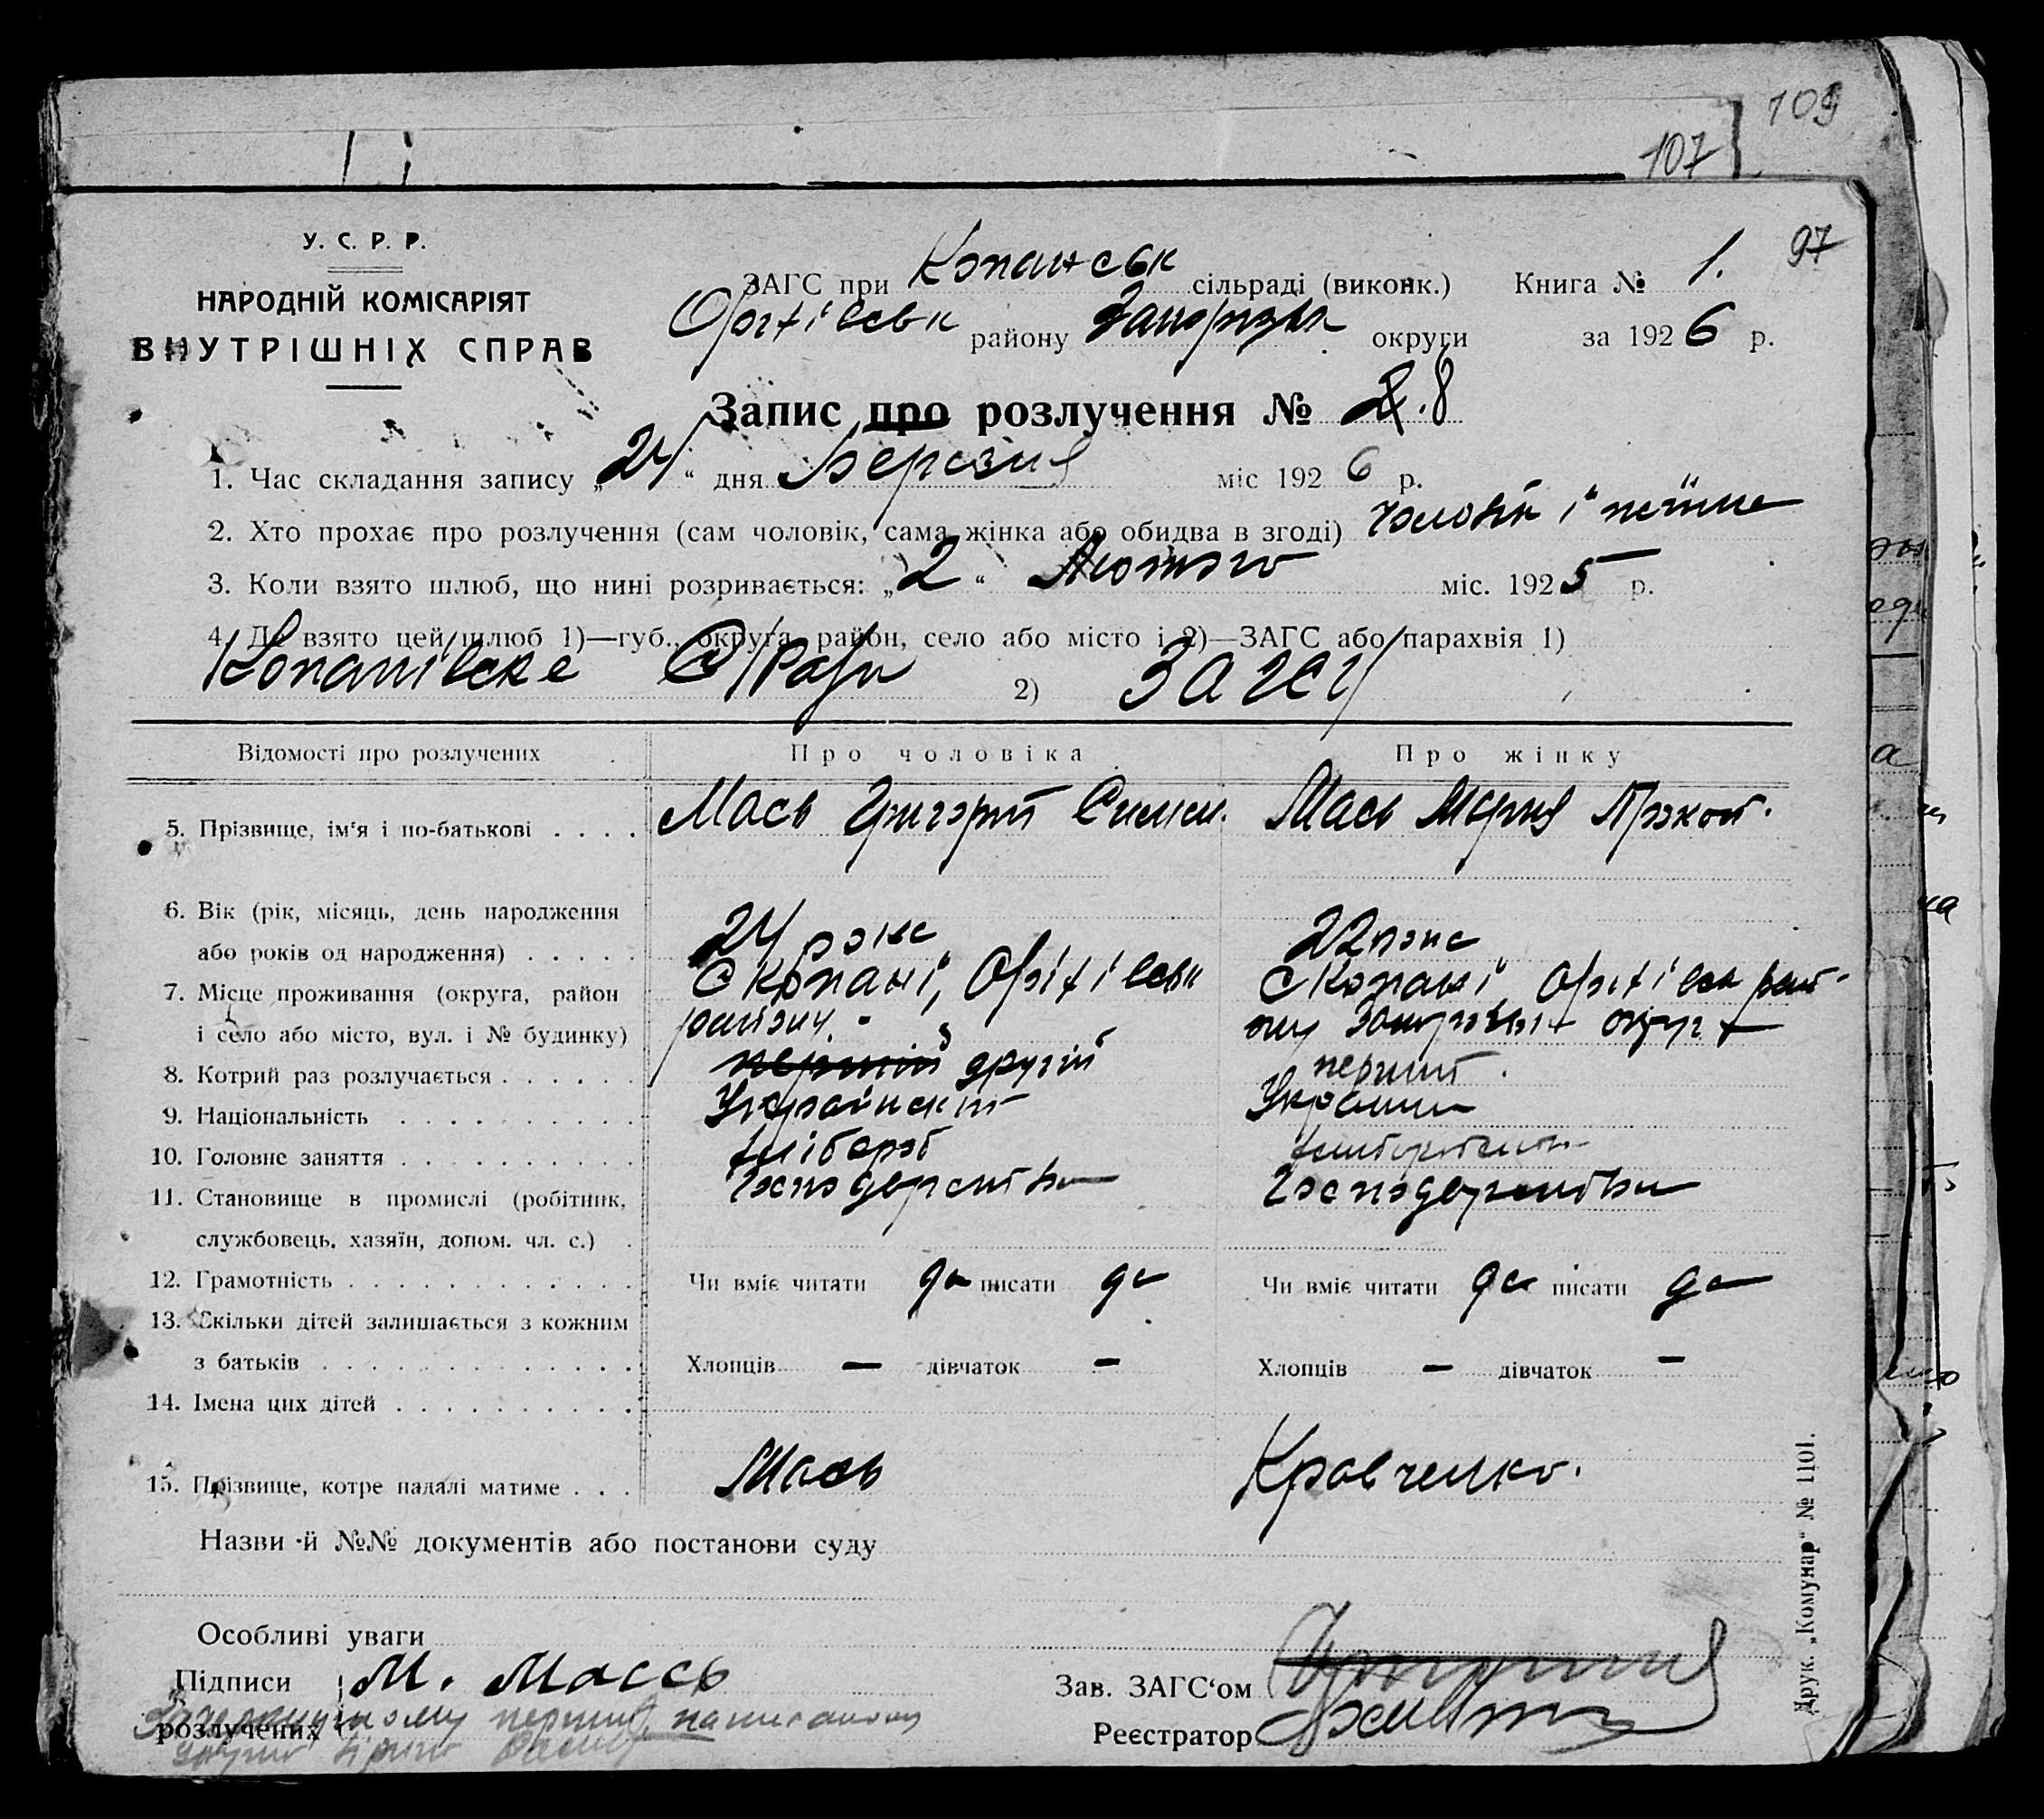 109
107
97
У. С. Р. Р.
НАРОДНІЙ КОМІСАРІЯТ
ВНУТРІШНІХ СПРАВ
ЗАГС при Копанськ сільраді (виконк.) Книга № 1.
Оріхівськ району Запорізьк округи за 1926 р.
Запис про розлучення № 8
1. Час складання запису „24“ дня Березня міс 1926 р.
2. Хто прохає про розлучення (сам чоловік, сама жінка або обидва в згоді) Чоловік і
3. Коли взято шлюб, що нині розривається: „2“ Лютого міс. 1925 р.
4. Де взято цей шлюб 1)—губ., округа, район, село або місто і 2)—ЗАГС або парахвія 1)
Копанівске С/Рада 2) Загсу
Відомості про розлучених Про чоловіка Про жінку
5. Прізвище, ім'я і по-батькові . . . . Мась Григорій Симон. Мась Мария Прокоп.
6. Вік (рік, місяць, день народження
або років од народження) . . . . . 24 роке 22 роке
7. Місце проживання (округа, район С Копані, Оріхівськ С Копані, Оріхівськ рай-
і село або місто, вул. і № будинку) району ону Запорізьк округ
8. Котрий раз розлучається . . . . . . перший другий перший.
9. Національність . . . . . . . . . . Український Украин
10. Головне заняття . . . . . . . . . . хлібороб
11. Становище в промислі (робітник, Господарство Господарство
службовець, хазяїн, допом. чл. с.) .
12. Грамотність . . . . . . . . . . . . Чи вміє читати да писати да Чи вміє читати да писати да
13. Скільки дітей залишається з кожним
з батьків . . . . . . . . . . . . . Хлопців — дівчаток - Хлопців — дівчаток -
14. Імена цих дітей . . . . . . . . . .
15. Прізвище, котре надалі матиме . . . Мась Кравченко.
Назви й №№ документів або постанови суду
Особливі уваги
Підписи М. Массь Зав. ЗАГС'ом
розлучених Реєстратор
Зачеркнутому перший написаному
Друк. „Комунар“ № 1101.